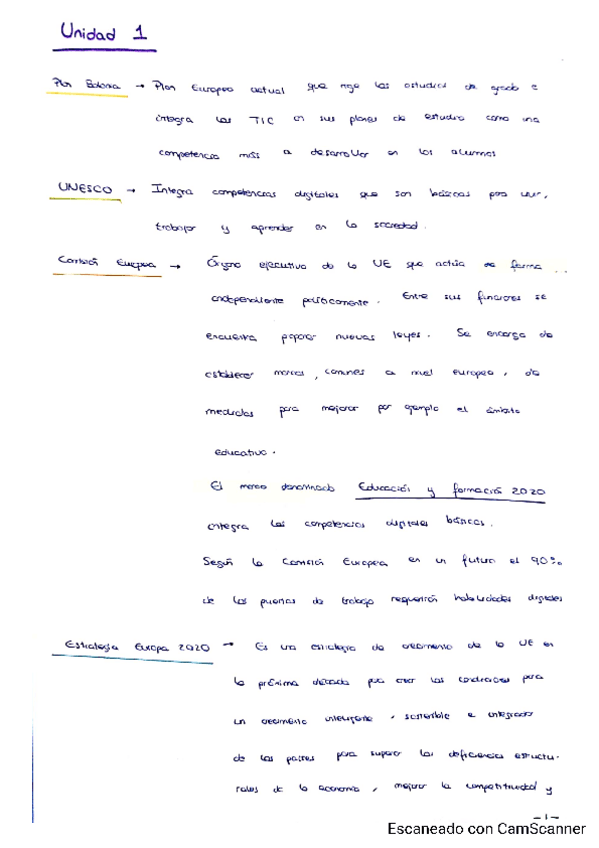 Unidad 1
Plan Bolonia → Plan Europeo actual que rige los estudios de grado e
integra las TIC en sus planes de estudio como una
competencia más a desarrollar en los alumnos
UNESCO → Integra competencias digitales que son básicas para vivir,
trabajar y aprender en la sociedad.
Comisión Europea → Órgano ejecutivo de la UE que actúa de forma
independiente políticamente. Entre sus funciones se
encuentra preparar nuevas leyes. Se encarga de
establecer marcos, comunes a nivel europeo, de
medidas para mejorar por ejemplo el ámbito
educativo.
El marco denominado Educación y formación 2020
integra las competencias digitales básicas.
Según la Comisión Europea en un futuro el 90%
de los puestos de trabajo requerirán habilidades digitales
Estrategia Europa 2020 → Es una estrategia de crecimiento de la UE en
la próxima década para crear las condiciones para
un crecimiento inteligente, sostenible e integrador
de los países para superar las deficiencias estructu-
rales de la economía, mejorar la competitividad y
-1-
Escaneado con CamScanner